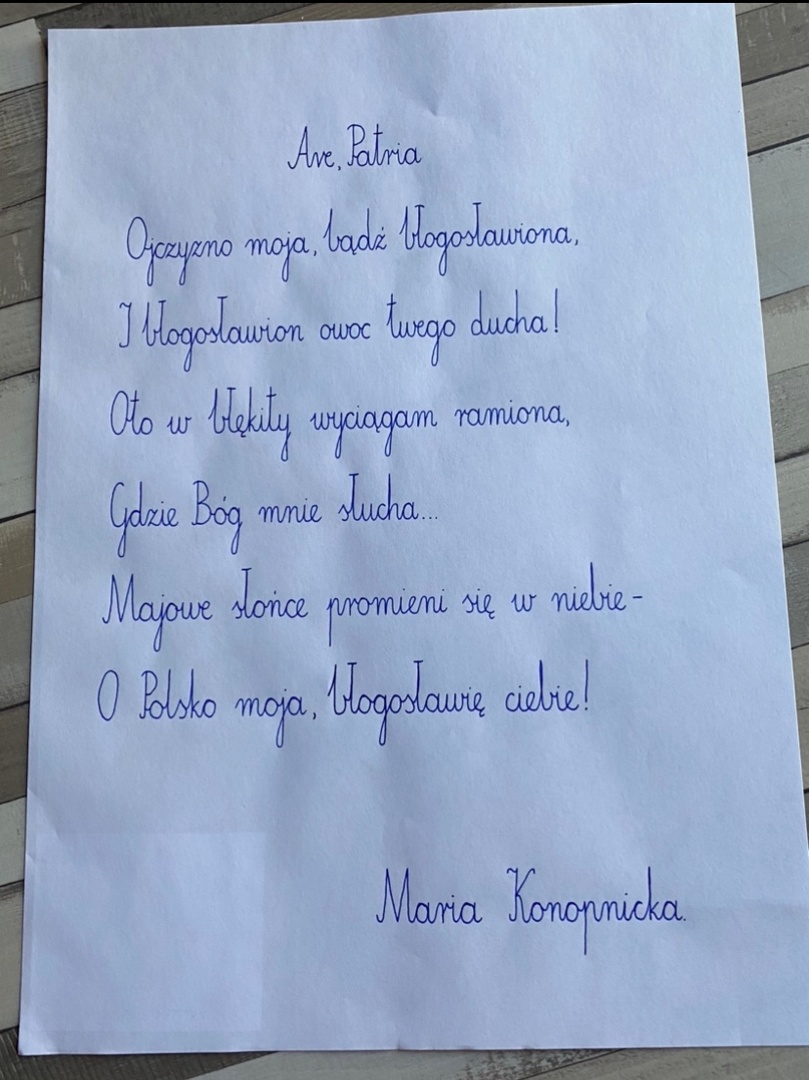 Ave, Patria
Ojczyzno moja, bądź błogosławiona,
I błogosławion owoc twego ducha!
Oto w błękity wyciągam ramiona,
Gdzie Bóg mnie słucha...
Majowe słońce promieni się w niebie-
O Polsko moja, błogosławię ciebie!
Maria Konopnicka.